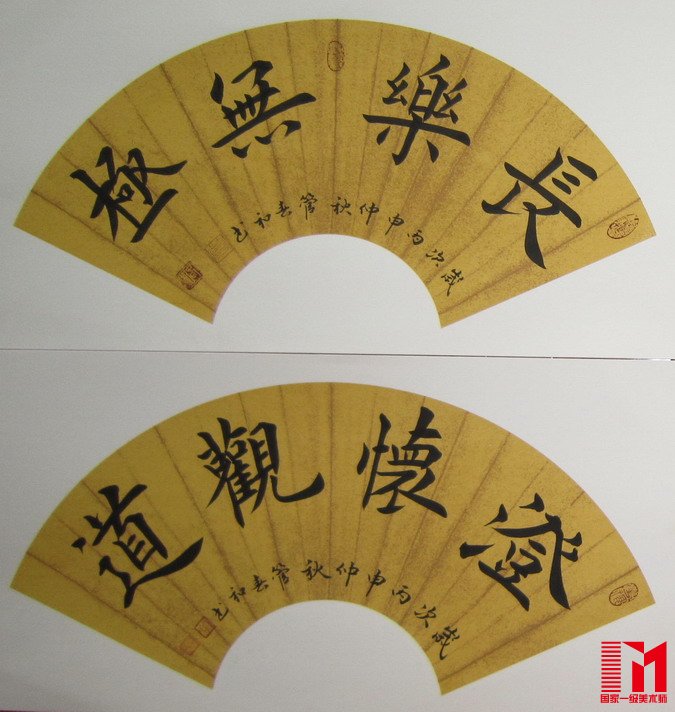 長樂無極
歲次丙申仲秋管和书
澄懷觀道
歲次丙申仲秋管和书
国家一级美术师